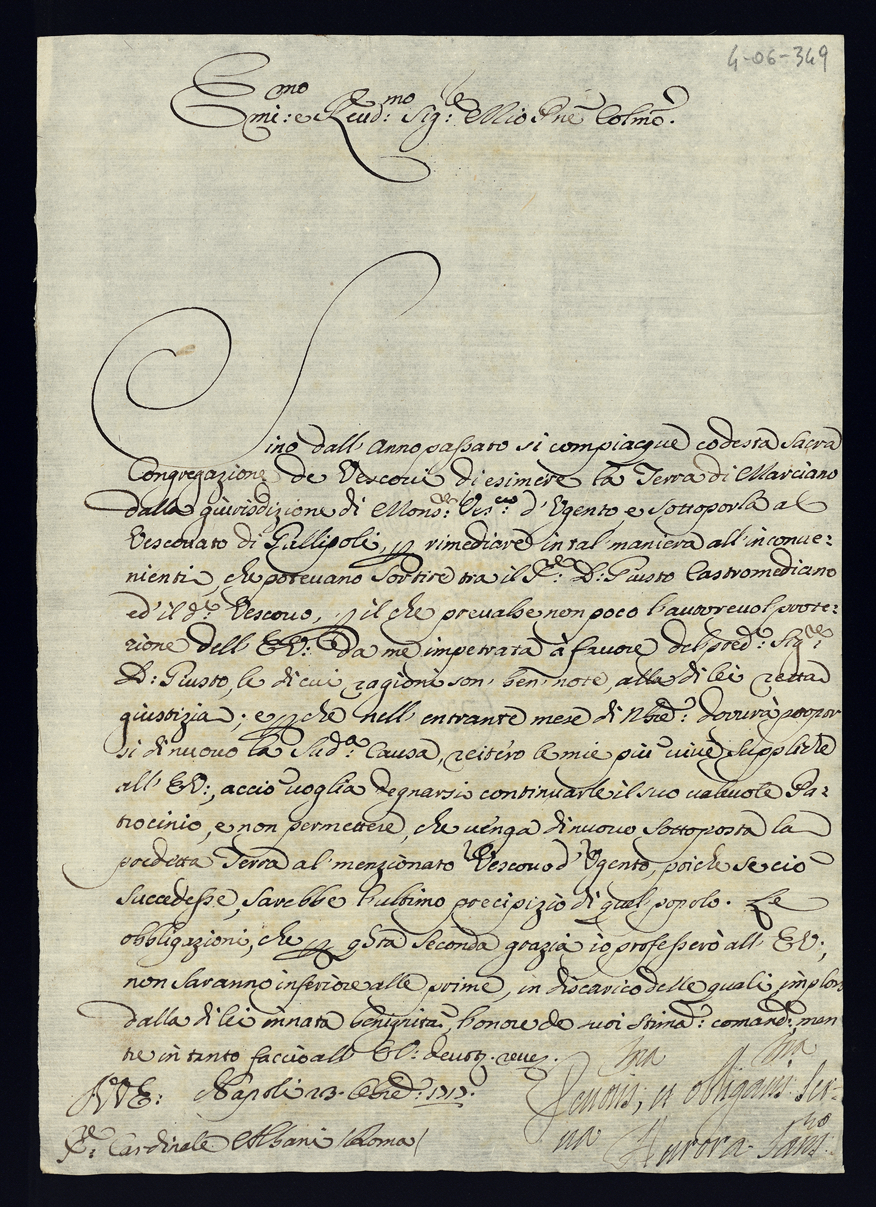 4-06-349
Emo:
mi: e Reud:mo Sig:re Mio Pne Colmo:
Sino dall' Anno passato si compiacque codesta Sacra
Congregazione de Vescoui di esimere la Terra di Marciano
dalla giurisdizione di Mons:r Ves:co d'Vgento, e Sottoporla al
Vescouato di Gallipoli, p rimediare in tal' maniera all' inconue:
nienti, che poteuano Sortire tra il D: Giusto Castromediano
ed' il d:o Vescouo, p il che preualse non poco l'autoreuol prote:
zione dell' E.V: da me impetrata à fauore del pred:o Sig:re
D: Giusto, le di cui ragioni son' ben' note, alla di lei retta
giustizia; e p che nell' entrante mese di Nbre: dourà propor
si di nuouo la Sud:a Causa, reitero le mie più viue Suppliche
all' E.V:, acciò uoglia degnarsi continuarle il suo ualeuole Pa:
trocinio, e non permettere, che uenga di nuouo Sottoposta la
predetta Terra al menzionato Vescouo d'Vgento, poiche se ciò
Succedesse, Sarebbe l'ultimo precipizio di quel popolo. Le
obbligazioni, che p qsta Seconda grazia io professerò all' E.V:,
non Saranno inferiore alle prime, in discarico delle quali imploro
dalla di lei innata benignità, l'onore de suoi Stima: comand: men
tre in tanto faccio all' E.V: deuotma reue:
Napoli 23. Obre: 1717:
Deuotma, et obligatma Ser-
ua
Aurora San:
Sr: Cardinale Albani (Roma)